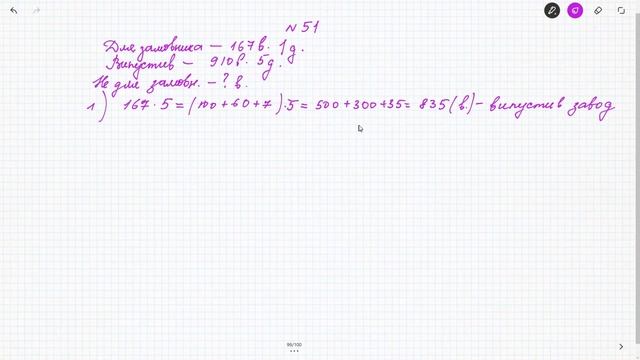 N 51
Для замовника - 167 в. 1 д.
Випустив - 910 в. 5 д.
Не для замовн. - ? в.
1) 167 · 5 = (100 + 60 + 7) · 5 = 500 + 300 + 35 = 835 (в.) - випустив завод
99/100